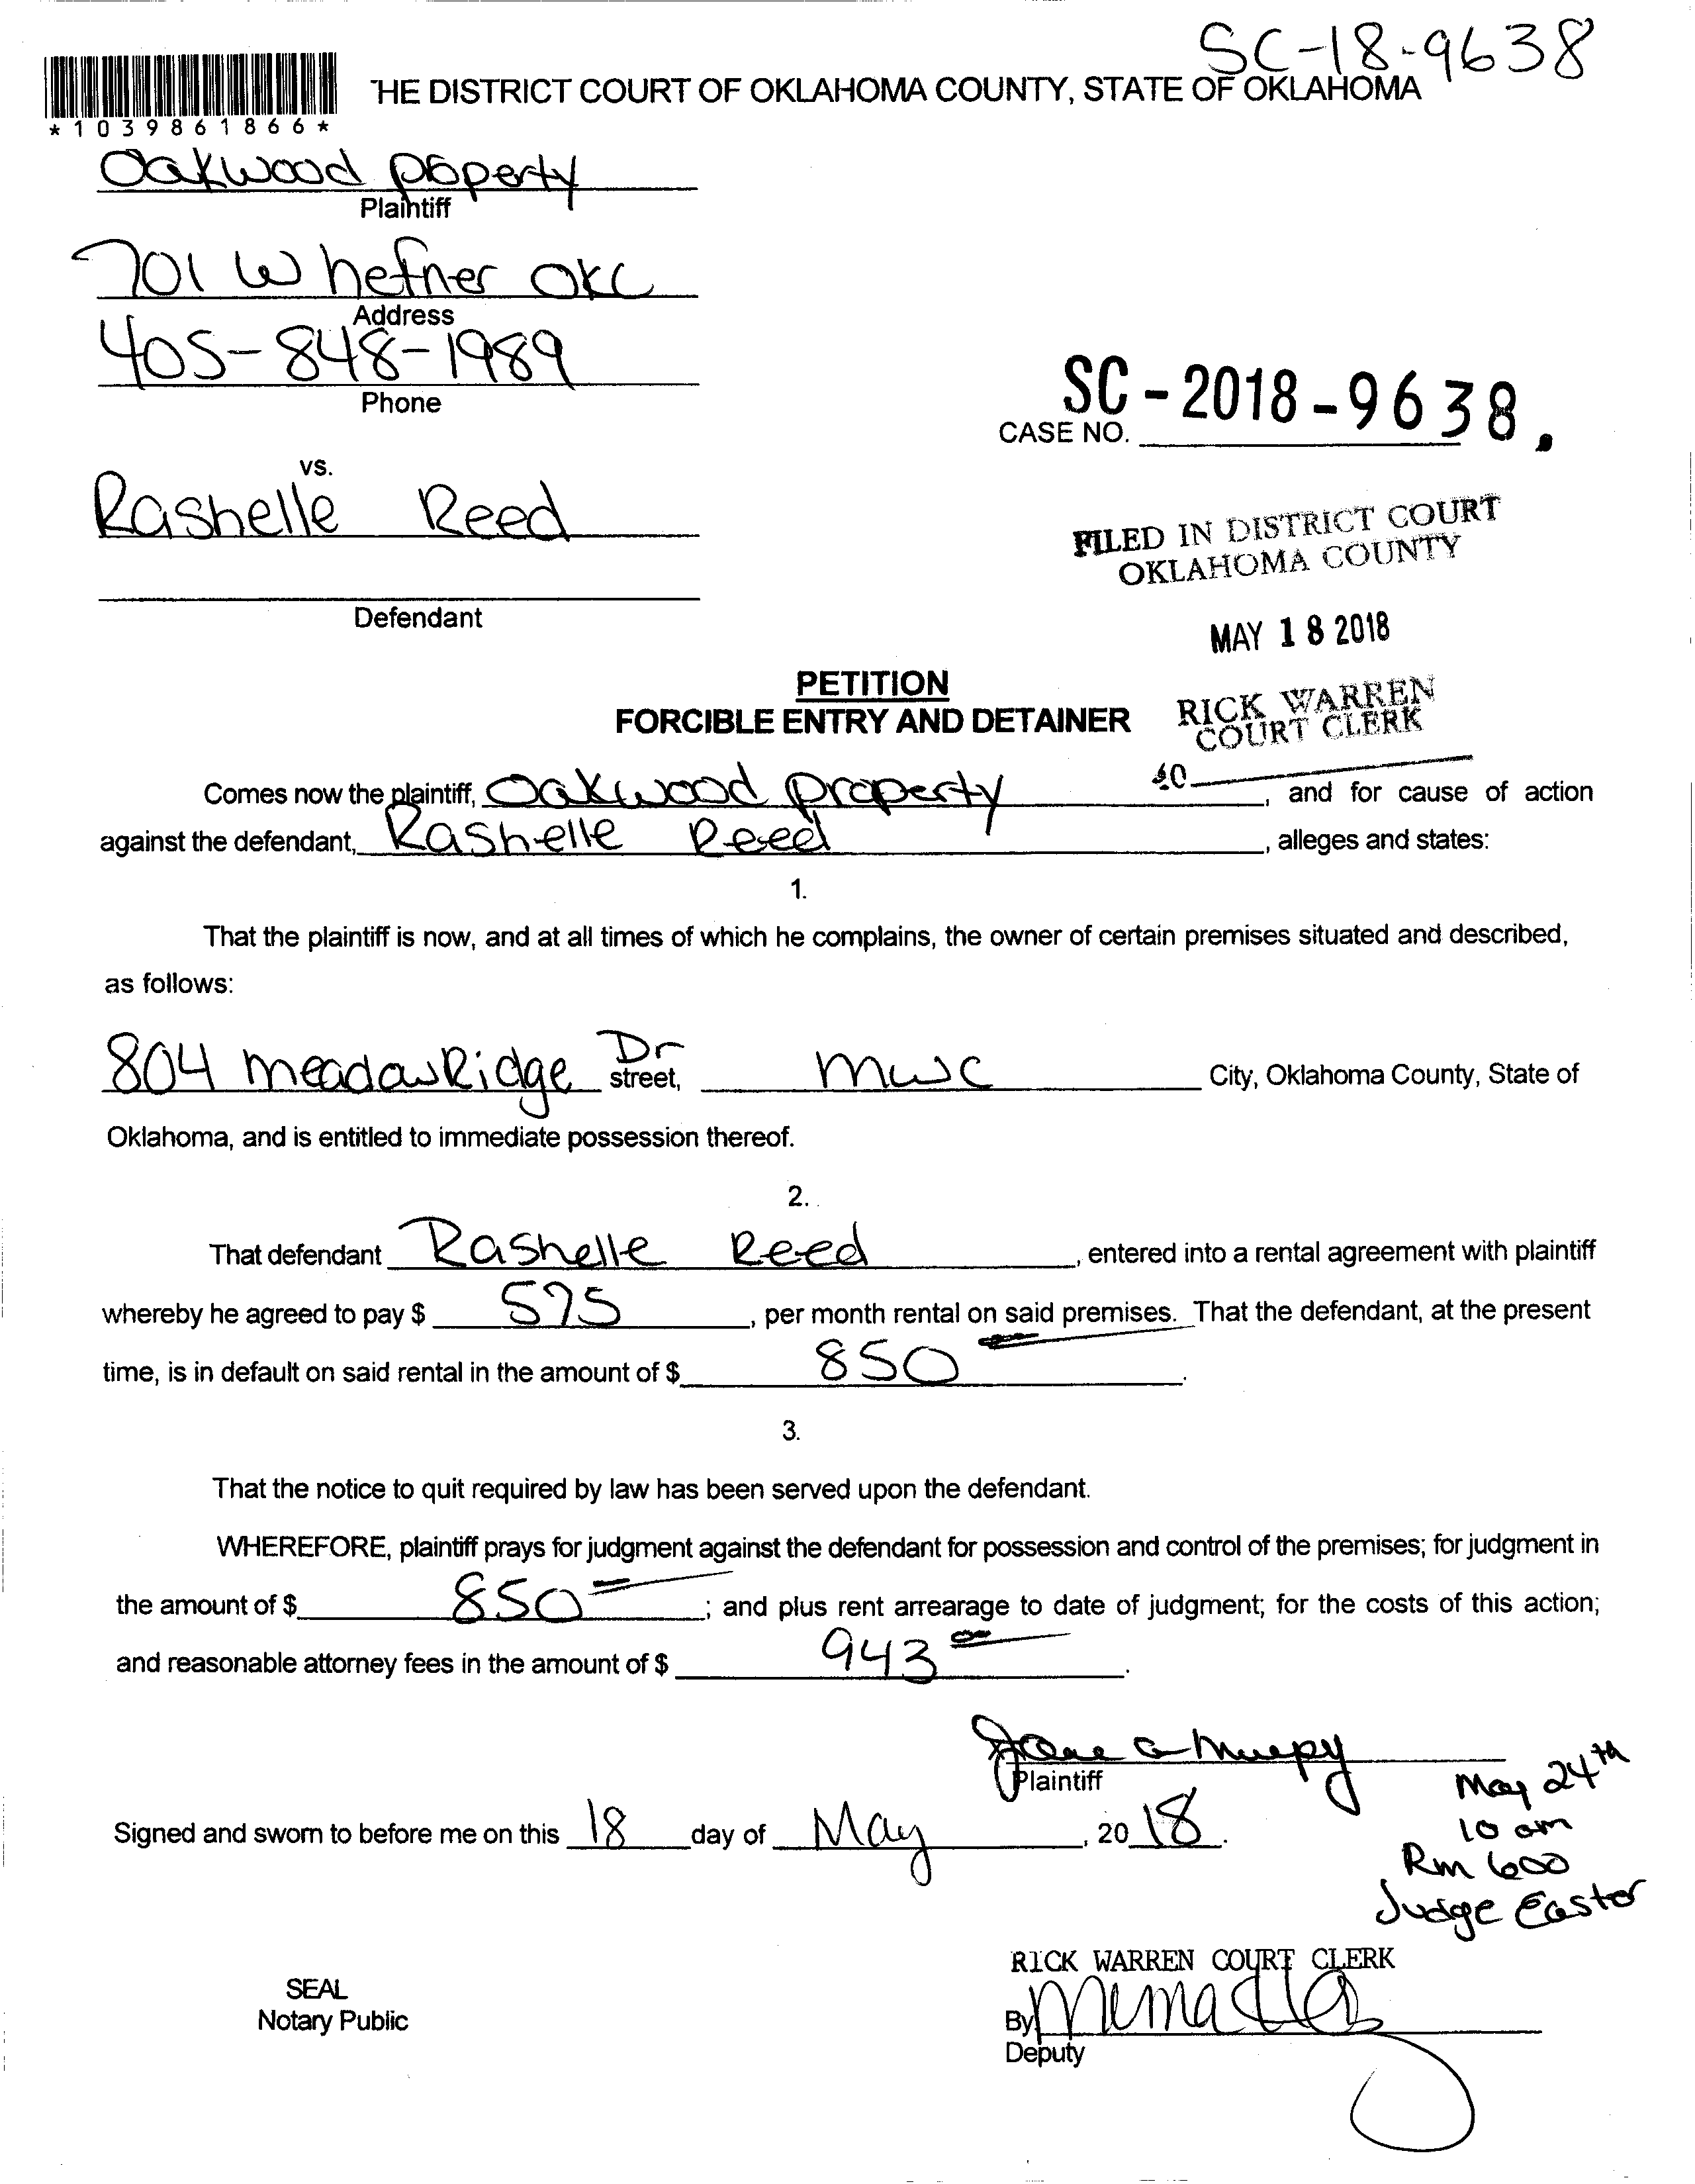 SC-18-9638
*1039861866*
THE DISTRICT COURT OF OKLAHOMA COUNTY, STATE OF OKLAHOMA
Oakwood property
Plaintiff
701 W hefner OKC
Address
405-848-1989
Phone
SC-2018-9638.
CASE NO.
vs.
Rashelle Reed
Defendant
FILED IN DISTRICT COURT
OKLAHOMA COUNTY
MAY 18 2018
RICK WARREN
COURT CLERK
40
PETITION
FORCIBLE ENTRY AND DETAINER
Comes now the plaintiff, Oakwood property, and for cause of action
against the defendant, Rashelle Reed, alleges and states:
1.
That the plaintiff is now, and at all times of which he complains, the owner of certain premises situated and described,
as follows:
804 meadowRidge Dr street, mwc City, Oklahoma County, State of
Oklahoma, and is entitled to immediate possession thereof.
2.
That defendant Rashelle Reed, entered into a rental agreement with plaintiff
whereby he agreed to pay $ 575, per month rental on said premises. That the defendant, at the present
time, is in default on said rental in the amount of $ 850.
3.
That the notice to quit required by law has been served upon the defendant.
WHEREFORE, plaintiff prays for judgment against the defendant for possession and control of the premises; for judgment in
the amount of $ 850; and plus rent arrearage to date of judgment; for the costs of this action;
and reasonable attorney fees in the amount of $ 943 00.
Plaintiff
Signed and sworn to before me on this 18 day of May, 2018.
May 24th
10 am
Rm 600
Judge Easter
SEAL
Notary Public
RICK WARREN COURT CLERK
By
Deputy